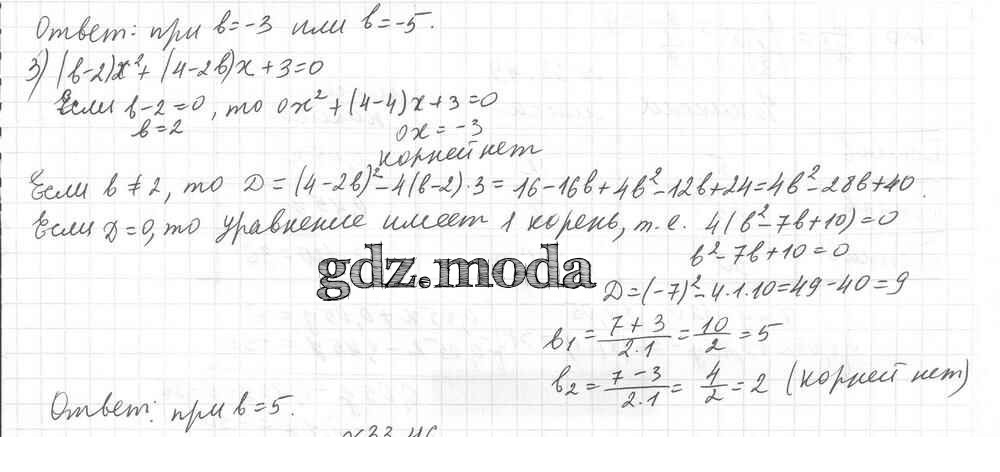 Ответ: при в=-3 или в=-5.
3) (в-2)х²+(4-2в)х+3=0
Если в-2=0, то 0х²+(4-4)х+3=0
в=2 0х=-3
корней нет
Если в≠2, то D=(4-2в)²-4(в-2)·3=16-16в+4в²-12в+24=4в²-28в+40.
Если D=0, то уравнение имеет 1 корень, т.е. 4(в²-7в+10)=0
в²-7в+10=0
gdz.moda
D=(-7)²-4·1·10=49-40=9
в₁=(7+3)/(2·1)=10/2=5
в₂=(7-3)/(2·1)=4/2=2 (корней нет)
Ответ: при в=5.